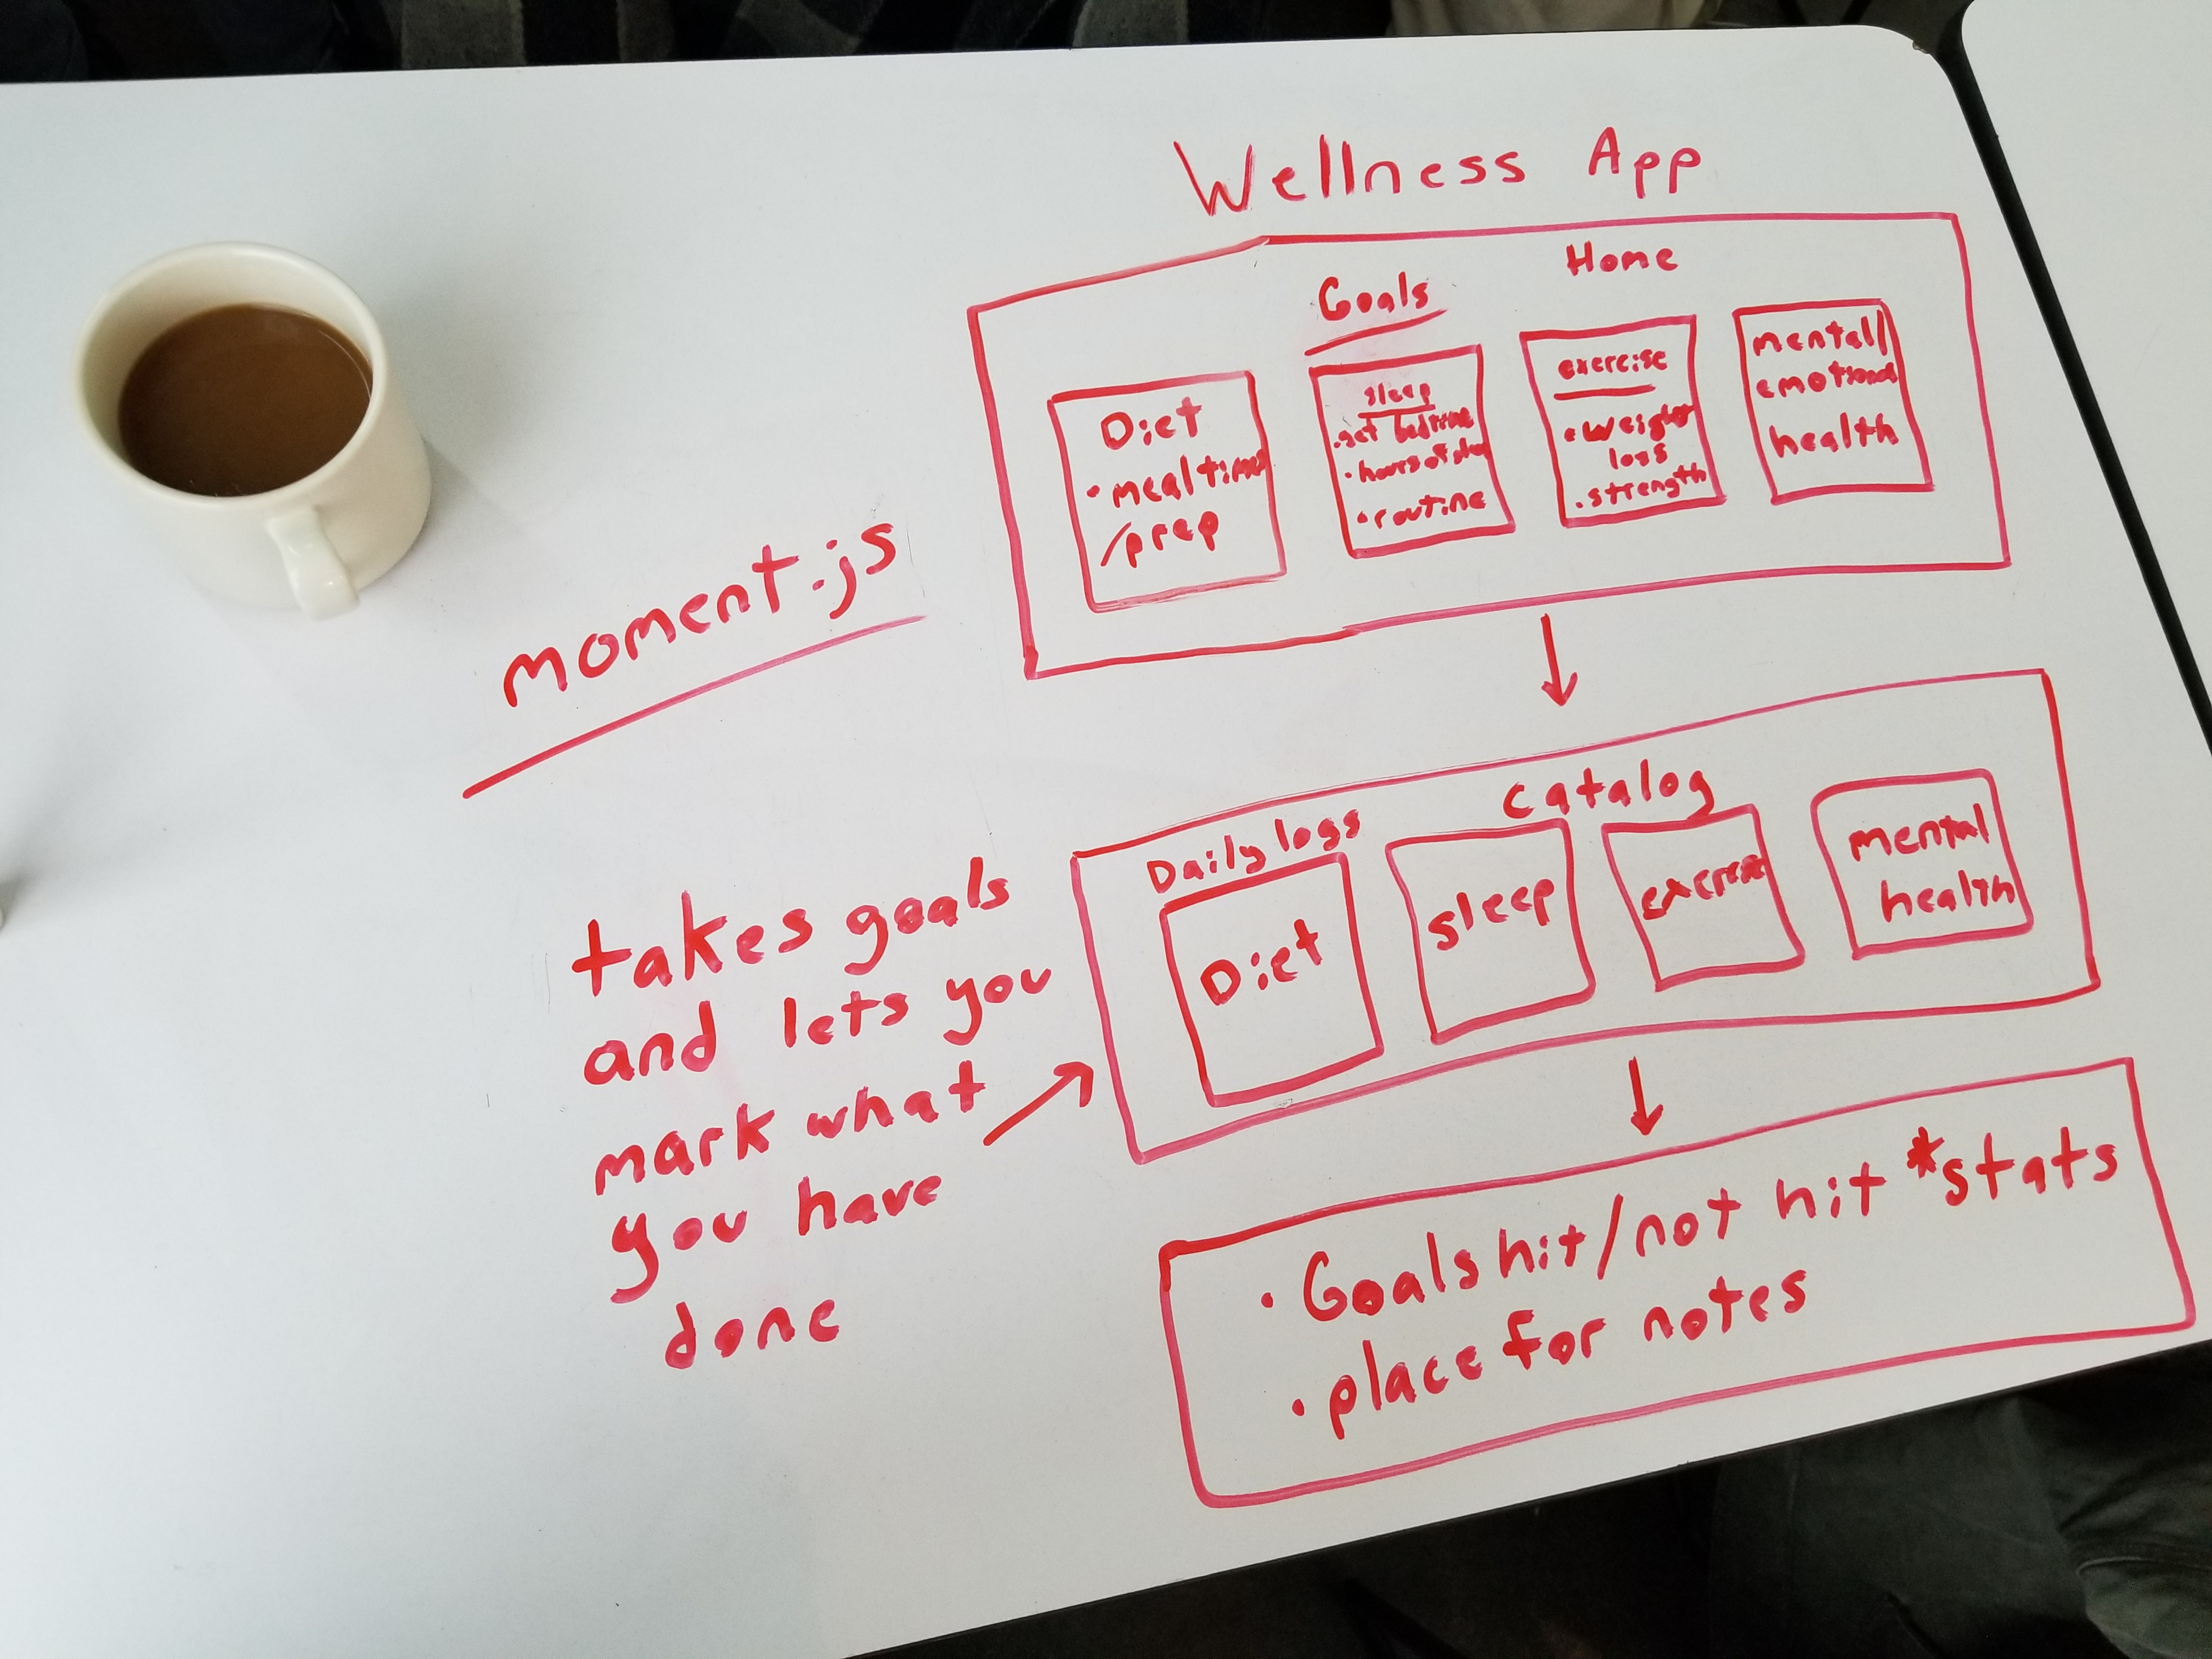 Wellness App
Home
Goals
Diet
• mealtime
/prep
sleep
• set bedtime
• hours of sleep
• routine
exercise
• weight
loss
• strength
mental/
emotional
health
moment.js
Catalog
Daily logs
Diet
sleep
exercise
mental
health
takes goals
and lets you
mark what
you have
done
• Goals hit/not hit *stats
• place for notes